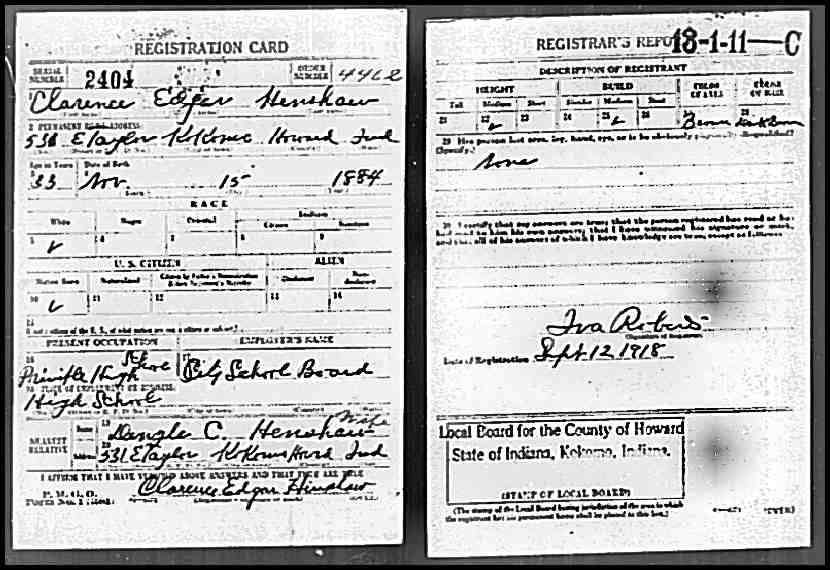 REGISTRATION CARD
SERIAL NUMBER 2404 ORDER NUMBER 4462
Clarence Edgar Henshaw
2 PERMANENT HOME ADDRESS:
531 E Taylor Kokomo Howard Ind
Age in Years Date of Birth
33 Nov. 15 1884
RACE
White Negro Oriental Indian
Citizen
5 ✓ 6 7 8 9
U. S. CITIZEN ALIEN
Native Born Naturalized Declarant Non-declarant
10 ✓ 11 12 13 14
15
PRESENT OCCUPATION EMPLOYER'S NAME
16 High School 17 City School Board
18 PLACE OF EMPLOYMENT OR BUSINESS:
High School
NEAREST RELATIVE Name 19 C. Henshaw Wife
Address 20 531 E Taylor Kokomo Howd Ind
I AFFIRM THAT I HAVE VERIFIED ABOVE ANSWERS AND THAT THEY ARE TRUE
P. M. G. O.
Clarence Edgar Hinshaw
REGISTRAR'S REPORT 13-1-11-C
DESCRIPTION OF REGISTRANT
HEIGHT BUILD COLOR OF EYES COLOR OF HAIR
Tall Medium Short Slender Medium Stout
21 22 ✓ 23 24 25 ✓ 26 27 Brown 28 Dark Brown
29 Has person lost arm, leg, hand, eye, or is he obviously physically disqualified?
(Specify.)
None
30 I certify that my answers are true; that the person registered has read or has
had read to him his own answers; that I have witnessed his signature or mark,
and that all of his answers of which I have knowledge are true, except as follows:
Iva
(Signature of Registrar)
Date of Registration Sept. 12 1918
Local Board for the County of Howard
State of Indiana, Kokomo, Indiana.
(STAMP OF LOCAL BOARD)
(The stamp of the Local Board having jurisdiction of the area in which
the registrant has his permanent home shall be placed in this box.)
(OVER)